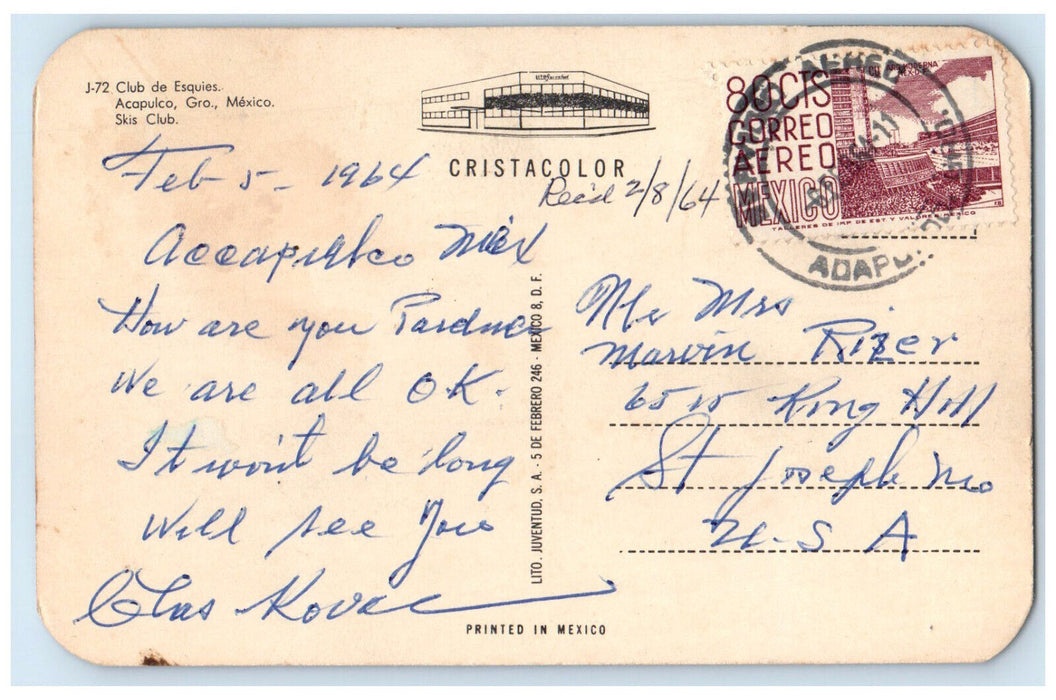 J-72 Club de Esquies.
Acapulco, Gro., México.
Skis Club.
CRISTACOLOR
80 CTS
CORREO
AEREO
MEXICO
TALLERES DE IMP DE EST Y VALORES MEXICO
AEREO
Rec'd 2/8/64
Feb 5 - 1964
Accapulco Mex
How are you
We are all OK.
It won't be long
Will see you
Chas Kovac
LITO. JUVENTUD, S. A. - 5 DE FEBRERO 246 - MEXICO 8, D. F.
Mr Mrs
Marvin Rizer
6515 King Hill
St Joseph Mo
U-S A
PRINTED IN MEXICO